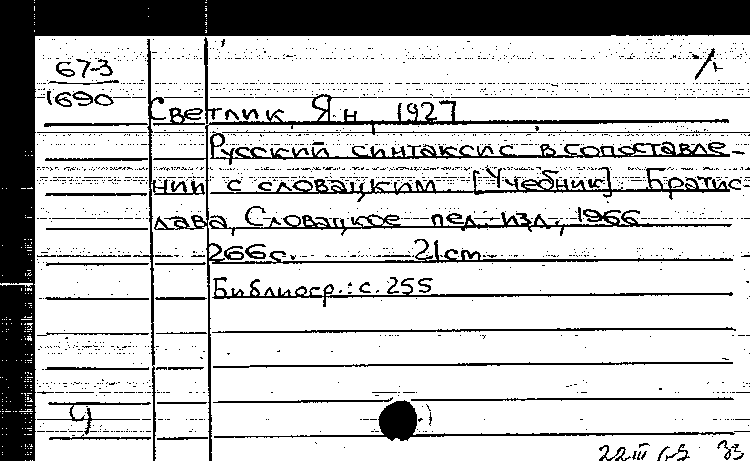 67-3
1690
Светлик, Ян, 1927
Русский синтаксис в сопоставле-
нии с словацким. [Учебник]. Братис-
лава, Словацкое пед. изд., 1966
266с. 21cm.
Библиогр.: с. 255
Ч
22 III
33